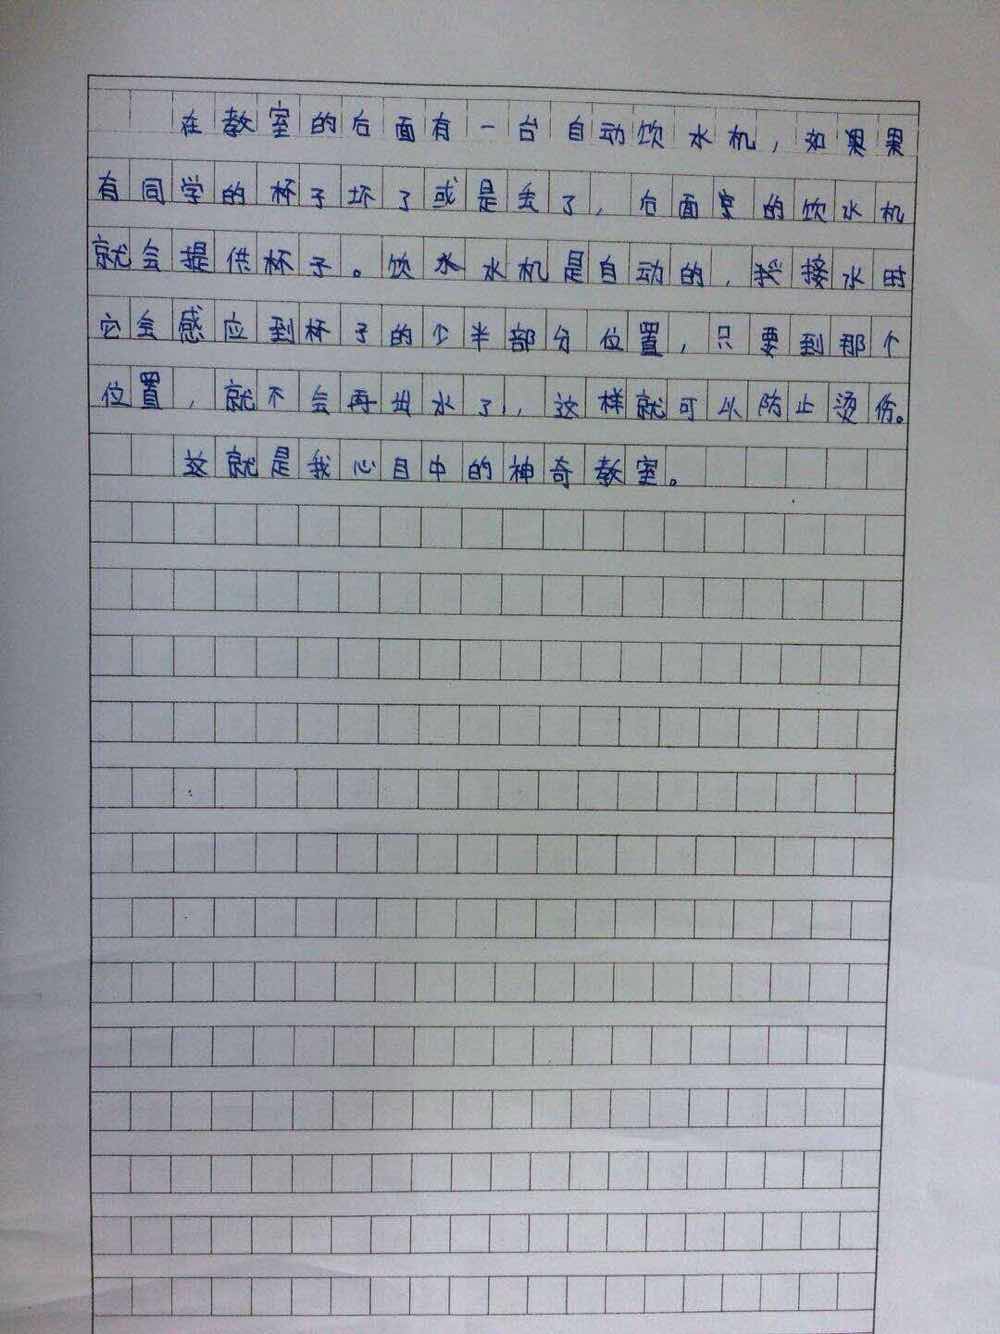 在教室的右面有一台自动饮水机，如果果
有同学的杯子坏了或是丢了，右面室的饮水机
就会提供杯子。饮水水机是自动的，接水时
它会感应到杯子的个半部分位置，只要到那个
位置，就不会再出水了，，这样就可以防止烫伤。
这就是我心目中的神奇教室。